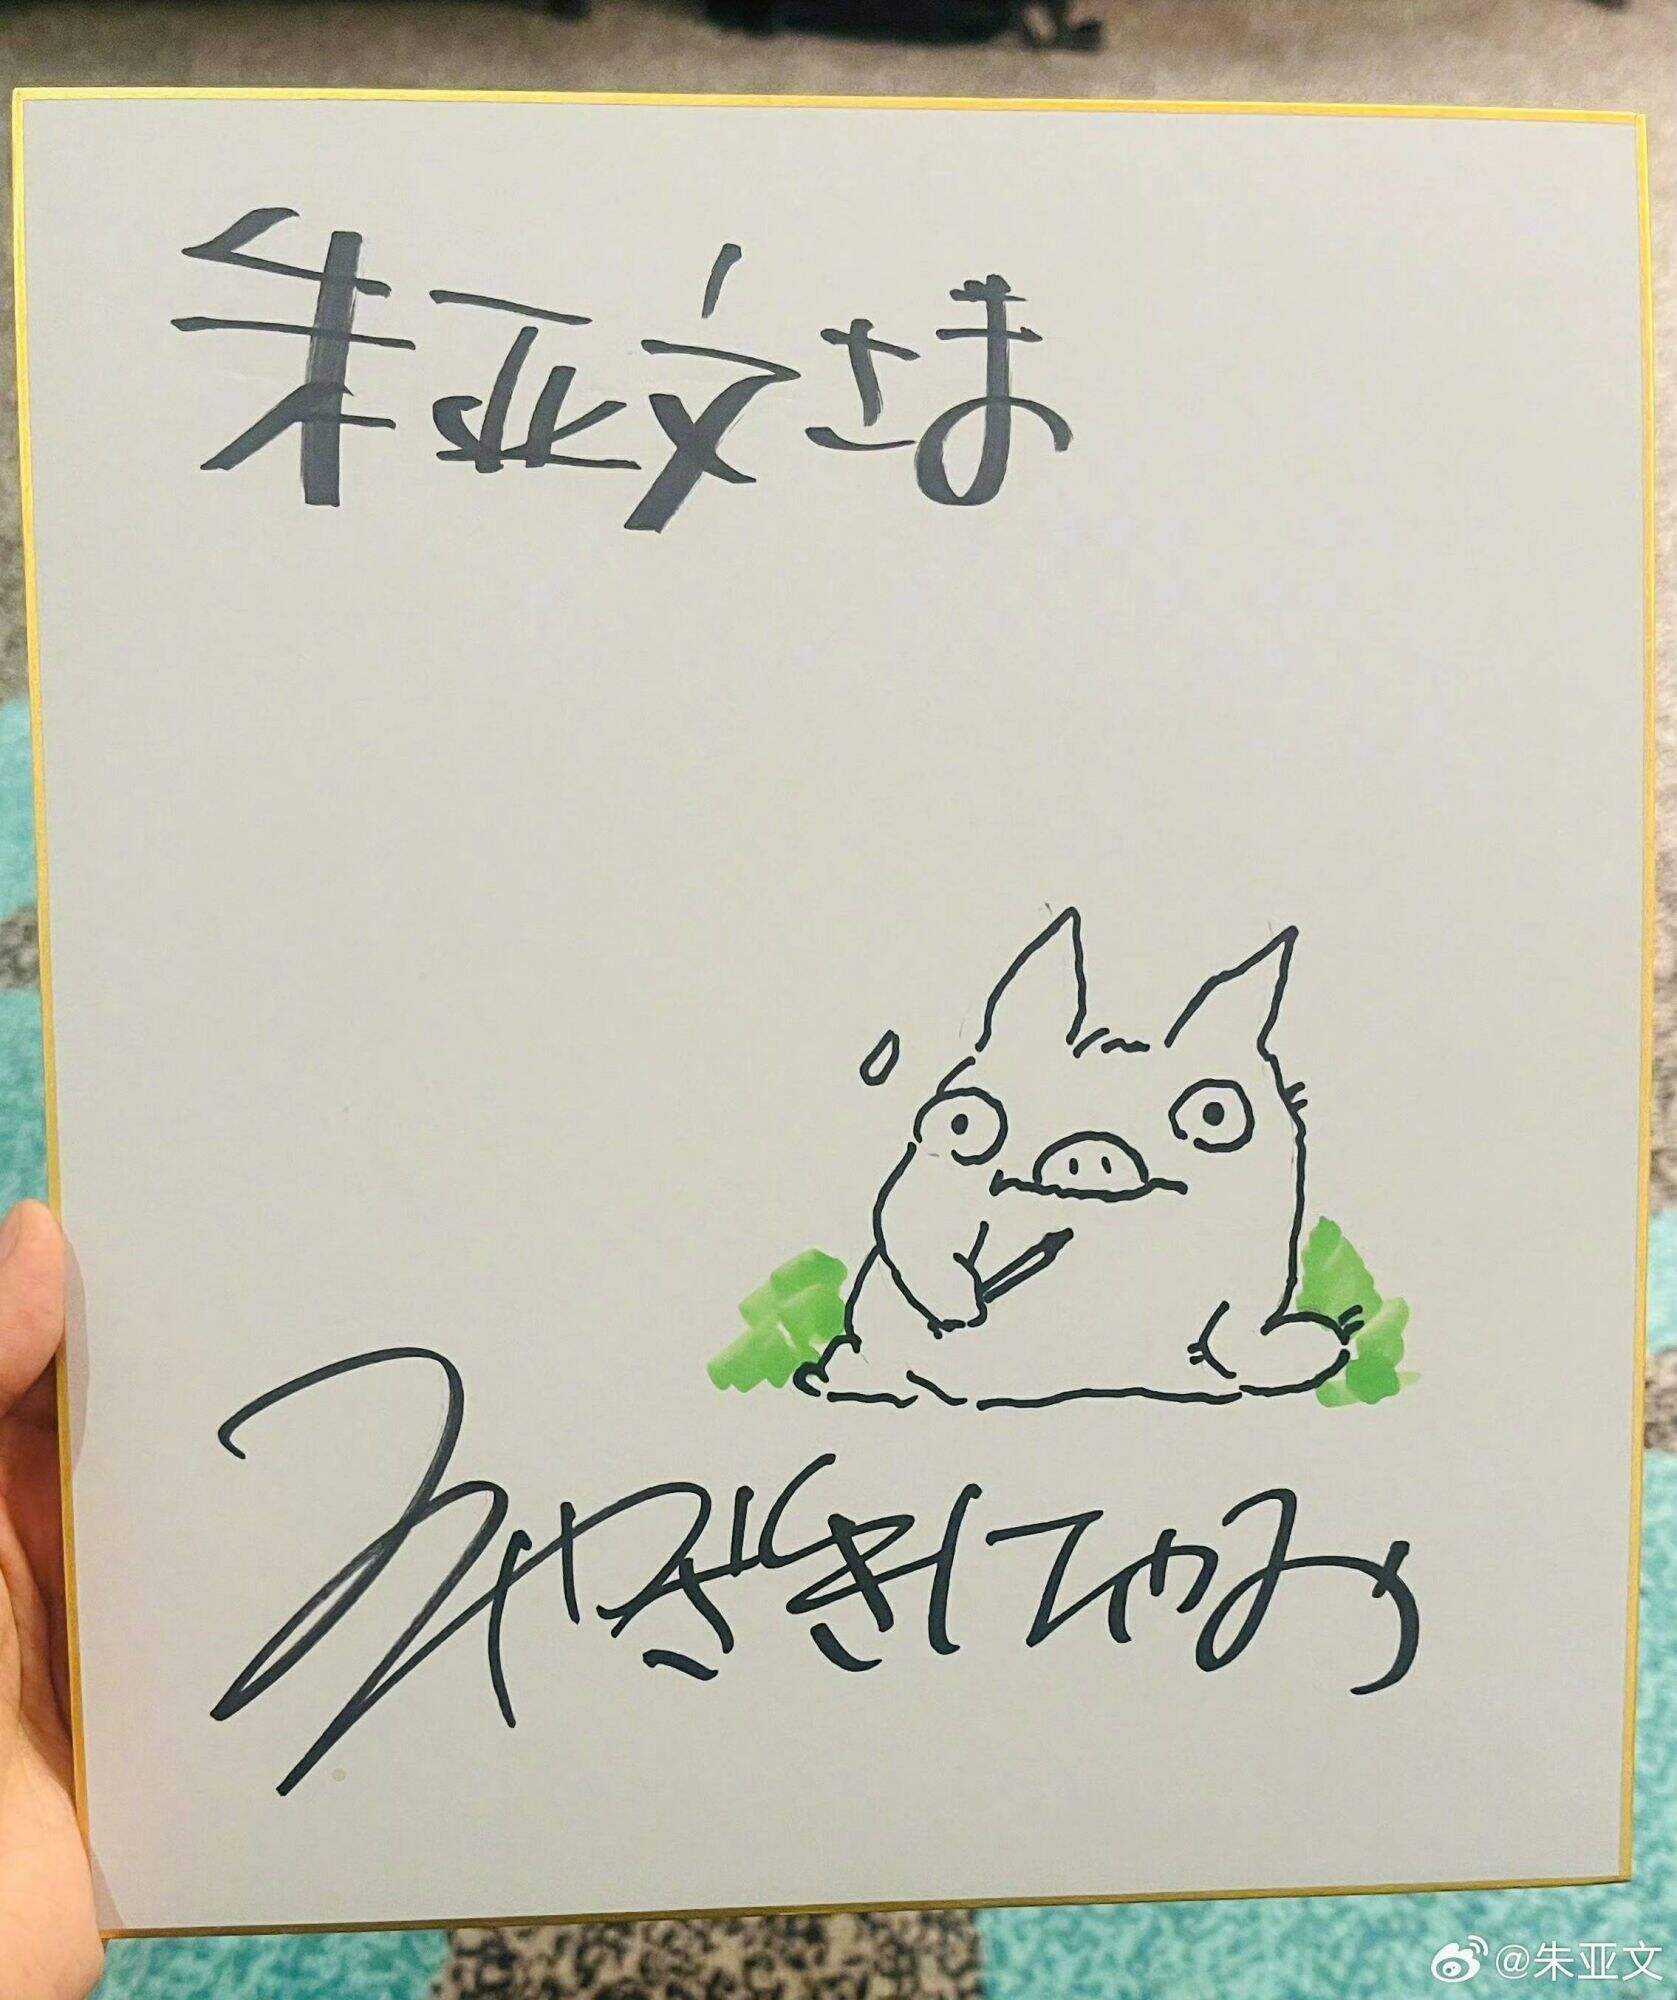 朱亜文さま
みやざきはやお
@朱亚文